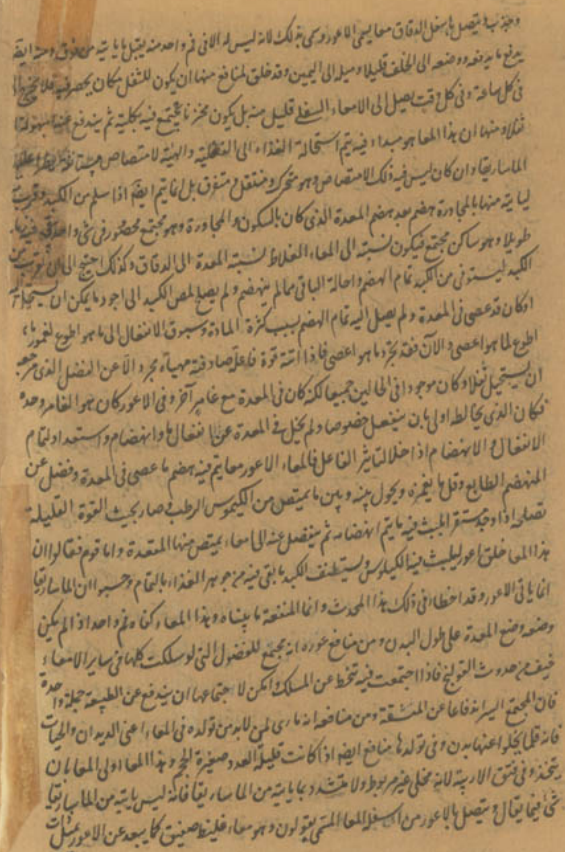 وجذب ما يتصل باسفل الدقاق معا يسمى الاعور وسمى بذلك لانه ليس له الا فم واحد منه يقبل ما ياتيه من فوق ومنه ايضا
يدفع ما يدفعه ووضعه الى الخلف قليلا وميله الى اليمين وقد خلق لمنافع منها ان يكون للثفل مكان يحصر فيه فلا يحوج الى
كل ساعة وفى كل وقت يصل الى الامعاء السفلى قليل منه بل يكون مخزنا يجتمع فيه بكليته ثم يندفع عنه بسهولة اذا
ثفلا ومنها ان هذا المعا هو مبداء فيه يتم استحالة الغذاء الى الثفلية والهيئة لامتصاص مستانف يطرا عليه
الماساريقا وان كان ليس فيه ذلك الامتصاص وهو متحرك ومنتقل ومتفرق بل انما يتم ايضا اذا سلم من الكبد وقرب
لياتيه منها بالمجاورة هضم بعد هضم المعدة الذى كان بالسكون والمجاورة وهو مجتمع محصور فى شئ واحد يبقى فيه زمانا
طويلا وهو ساكن مجتمع فيكون نسبته الى المعاء الغلاظ نسبة المعدة الى الدقاق ولذلك احتيج الى ان يقرب من
الكبد ليستوفى من الكبد تمام الهضم واحالة الباقى مما لم ينهضم ولم يصلح لمص الكبد الى اجود ما يمكن ان يستحيل اليه
اذ كان قد عصى فى المعدة ولم يصل اليه تمام الهضم بسبب كثرة المادة وسبوق الانفعال الى ما هو اطوع لغمور ما هو
اطوع لما هو اعصى والآن فقد تجرد ما هو اعصى فاذا اتته قوة فاعلة صادفته مهياء مجردا لا عن الفضل الذى من حقه
ان يستحيل ثفلا وكان موجودا فى الحالين جميعا لكنه كان فى المعدة مع غامر آخر وفى الاعور كان هو الغامر وحده
فكان الذى يخالطه اولى بان ينفعل خصوصا ولم يخل فى المعدة عن انفعال ما وانهضام واستعداد لتمام
الانفعال والانهضام اذا خلا لتاثير الفاعل فالمعاء الاعور معا يتم فيه هضم ما عصى فى المعدة وفضل عن
المنهضم الطايع وقل ما يغمره ويحول بينه وبين ما يمتص من الكيموس الرطب وصار بحيث القوة القليلة
تصلحه اذا وجد مستقرا يلبث فيه ما يتم انهضامه ثم ينفصل عنه الى امعاء يمتص منها المقعدة واما قوم فقالوا ان
هذا المعا خلق اعور ليلبث فيه الكيلوس ويستنظف الكبد ما بقى فيه من جوهر الغذاء بالتمام وحسبوا ان الماساريقا
انما ياتى الاعور وقد اخطاء فى ذلك هذا المحدث وانما المنفعة ما بيناه وهذا المعاء كفاه فم واحد اذ لم يكن
وضعه وضع المعدة على طول البدن ومن منافع عوره انه مجمع للفضول التى لو سلكت كلها فى ساير الامعاء
خيف من حدوث القولنج فاذا اجتمعت فيه تنحت عن المسلك وامكن لاجتماعها ان يندفع عن الطبيعة جملة واحدة
فان المجتمع ايسر اندفاعا عن المتشتت ومن منافعه انه ماوى لما لابد من تولده فى المعاء اعنى الديدان والحيات
فانه قلما يخلو عنها بدن وفى تولدها منافع ايضا اذا كانت قليلة العدد صغيرة الحجم وهذا المعا اولى المعا بان
ينحدر فى فتق الاربية لانه مخلى غير مربوط ولا مشدود بما ياتيه من الماساريقا فانه ليس ياتيه من الماساريقا
شئ فيما يقال ويتصل بالاعور من اسفله المعا المسمى بقولون وهو معاء غليظ صفيق كما يبعد عن الاعور يميل ذات